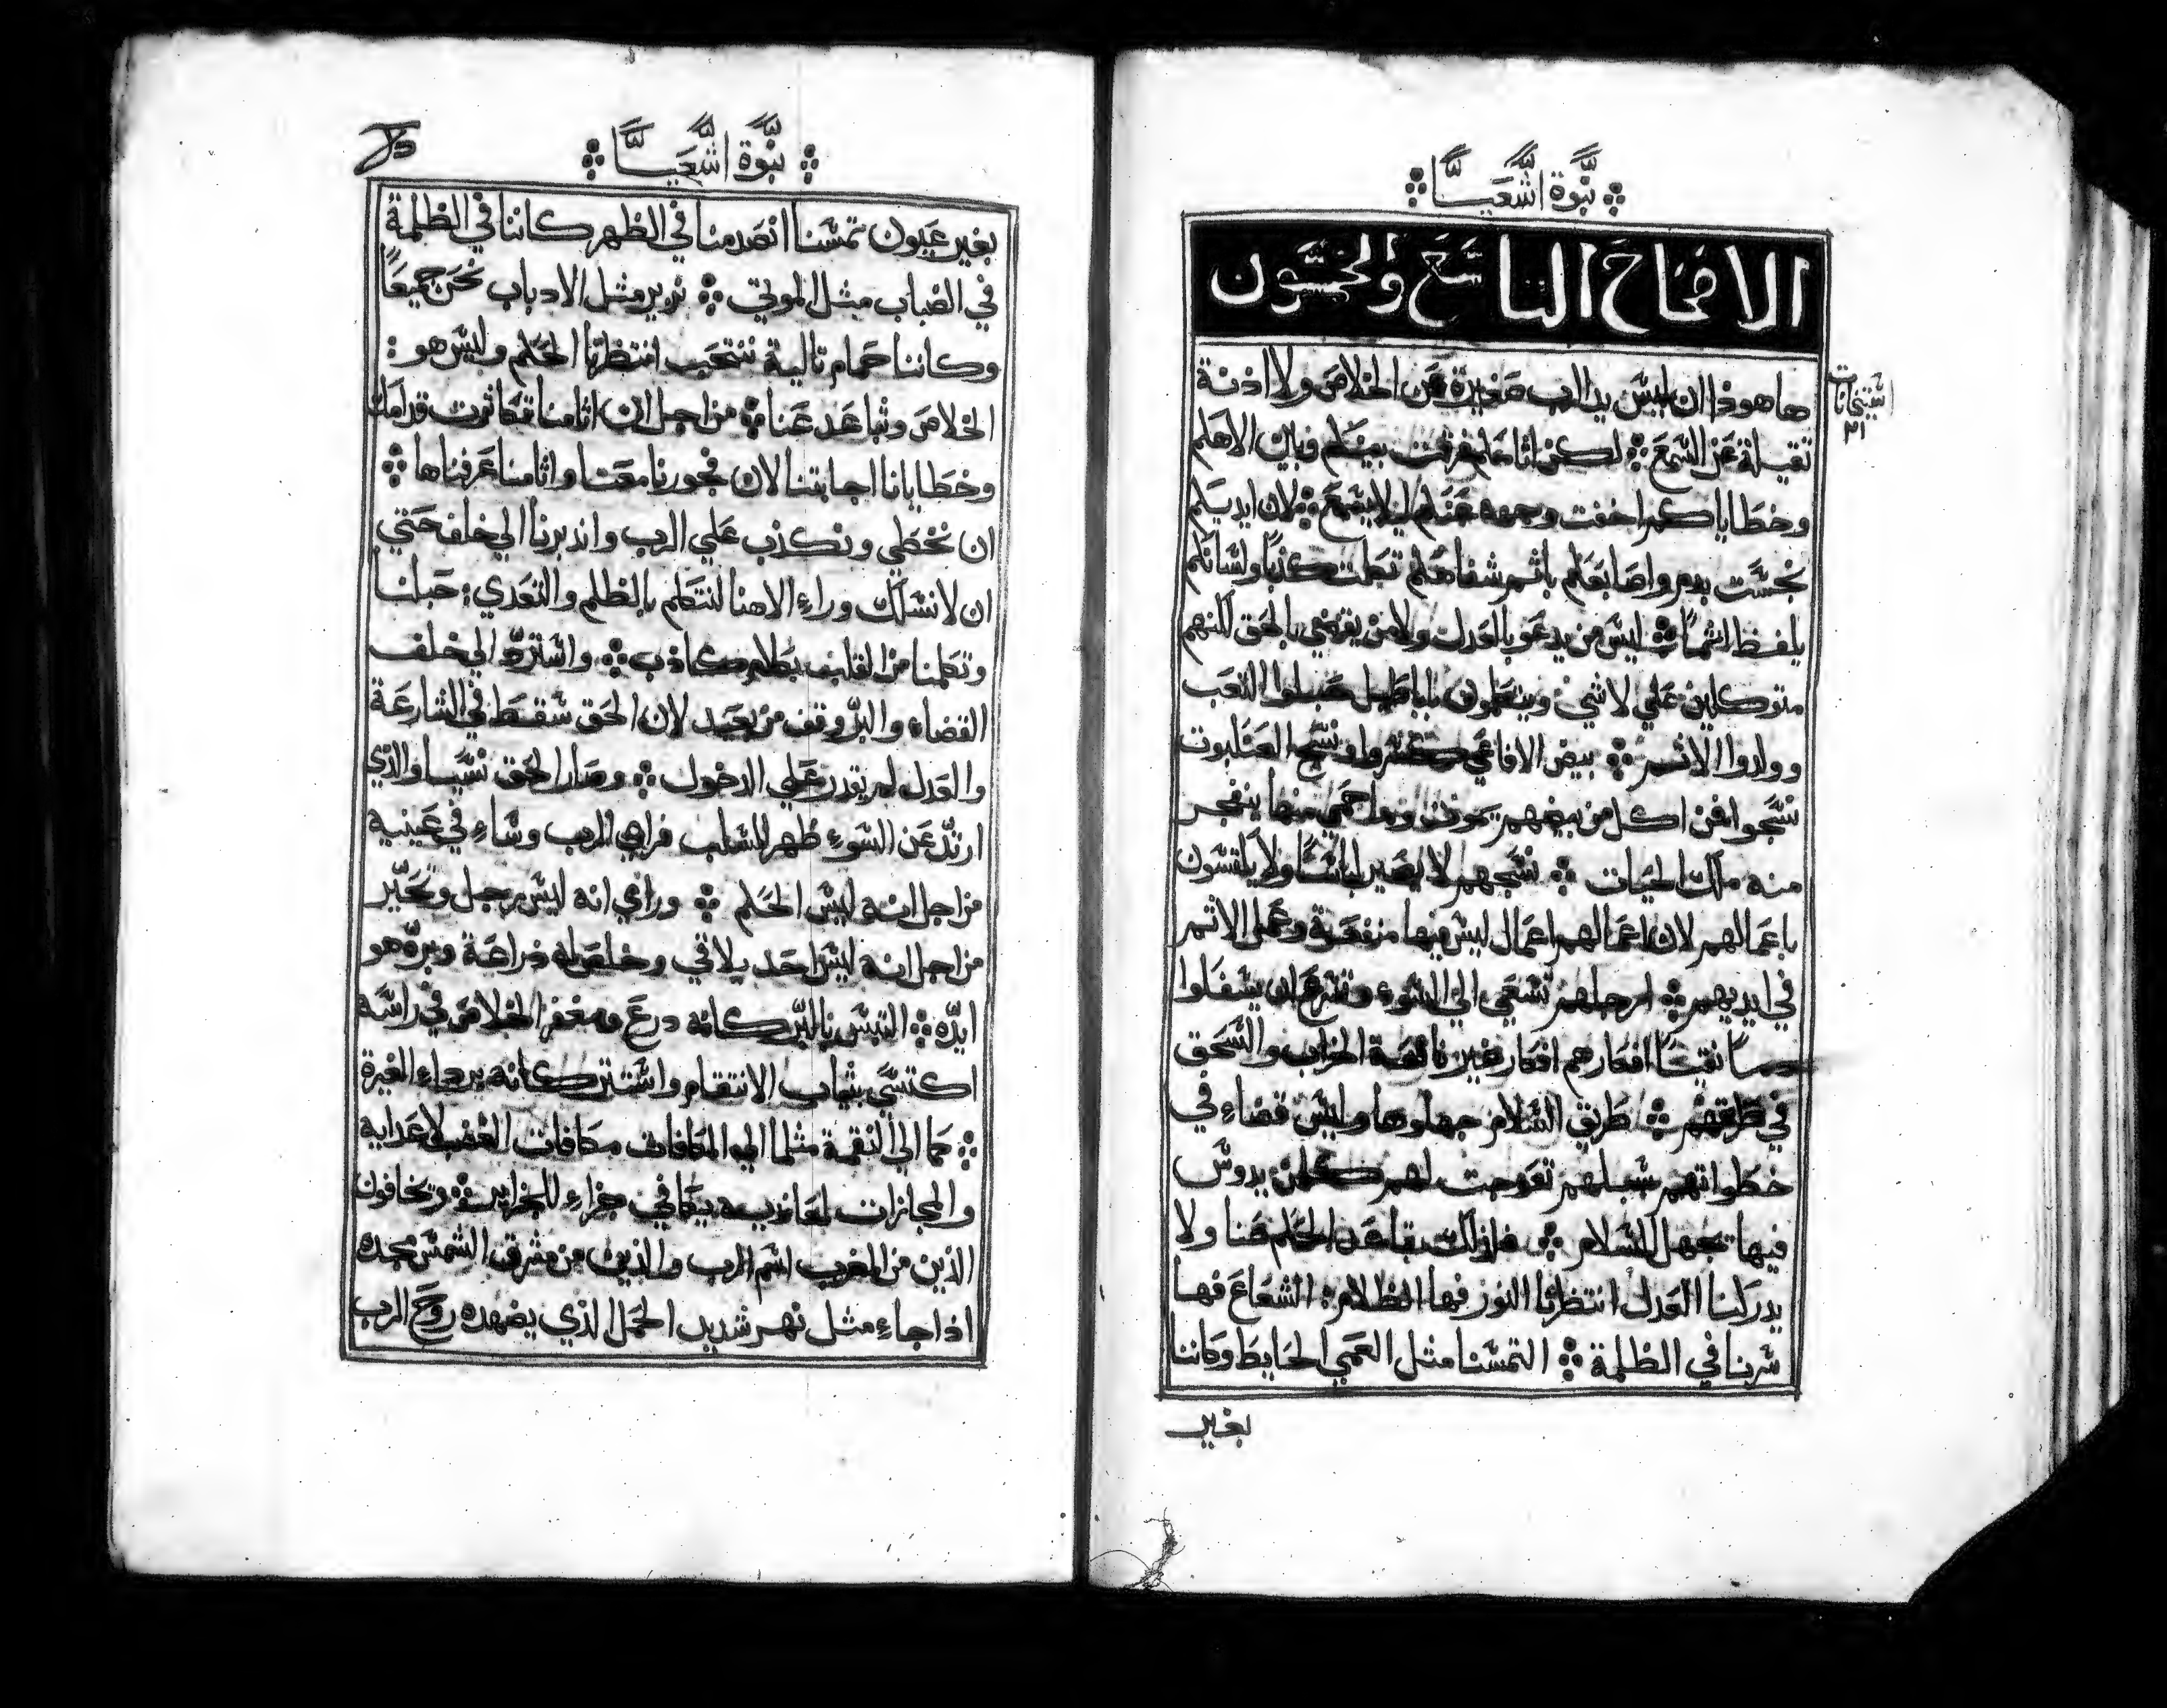 نبوة اشعيا
الافتحاح التاسع والخمسون
ها هوذا ان ليس يد الرب صغيرة عن الخلاص ولا اذنة
ثقيلة عن السمع لكن اثامكم فرقت بينكم وبين الاهكم
وخطاياكم اخفت وجهه عنكم ليلا يسمع لان ايديكم
نجست بدم واصابعكم باثم شفاهكم تكلمت كذبا ولسانكم
يلفظ اثما ليس من يدعو بالعدل ولا من يقضي بالحق لكنهم
متوكلين علي لا شي ويتكلمون بابا طيل حبلوا التعب
وولدوا الاثم بيض الافاعي نسج العنكبوت
نسجوا فمن اكل من بيضهم يموت وما حمي منها ينفجر
منه ملك الحيات نسجهم لا يصير لباسا ولا يلتسون
باعمالهم لان اعمالهم اعمال ليس فيها منفعة وعمل الاثم
في ايديهم ارجلهم تسعي الي السوء وتسرع ان يسفكوا
دما نقيا افكارهم افكار غير نافعة الخراب والسحق
في طرقهم طريق السلام جهلوها وليس قضاء في
خطواتهم سبلهم تعوجت لهم كلمن يدوس
فيها تجهل السلام فلذلك تباعد الحكم عنا ولا
يدركنا العدل انتظرنا النور فها الظلام الشعاع فها
سرنا في الظلمة التمسنا مثل العمي الحايط وكاننا
بغير
اشتيحانات
٢١
نبوة اشعيا
بغير عيون تمسنا انصدمنا في الظهر كاننا في الظلمة
في الضباب مثل الموتي نزير مثل الادباب نحن جميعا
وكاننا حمام تالية ننتحب انتظرنا الحكم وليس هو
الخلاص وتباعد عنا من اجل ان اثامنا تكاثرت قدامك
وخطايانا اجابتنا لان فجورنا معنا واثامنا عرفناها
ان نخطي ونكذب علي الرب واندبرنا الي خلف حتي
ان لا نسلك وراء الاهنا لنتكلم بالظلم والتعدي حبلنا
وتكلمنا من القلب بكلام كاذب واسترد الي خلف
القضاء والبر وقف من بعيد لان الحق سقط في الشارعة
والعدل لم يقدر علي الدخول وصار الحق نسيا والذي
ارتد عن السوء ظهر للسلب فراي الرب وساء في عينيه
من اجل انه ليس الحكم وراي انه ليس رجل وتحير
من اجل انه ليس احد يلاقي وخلص له ذراعة وبره هو
ايده التبس بالبر كانه درع ومغفر الخلاص في راسه
اكتسي بثياب الانتقام واستتر كانه برداء الغيرة
كما الي النقمة مثلما الي المكافات مكافات الغضب لاعدايه
والمجازات لمعانديه يكافي جزاء للجزاير ويخافون
الذين من المغرب اسم الرب والذين من مشرق الشمس مجده
اذا جاء مثل نهر شديد الحمل الذي يضهده روح الرب